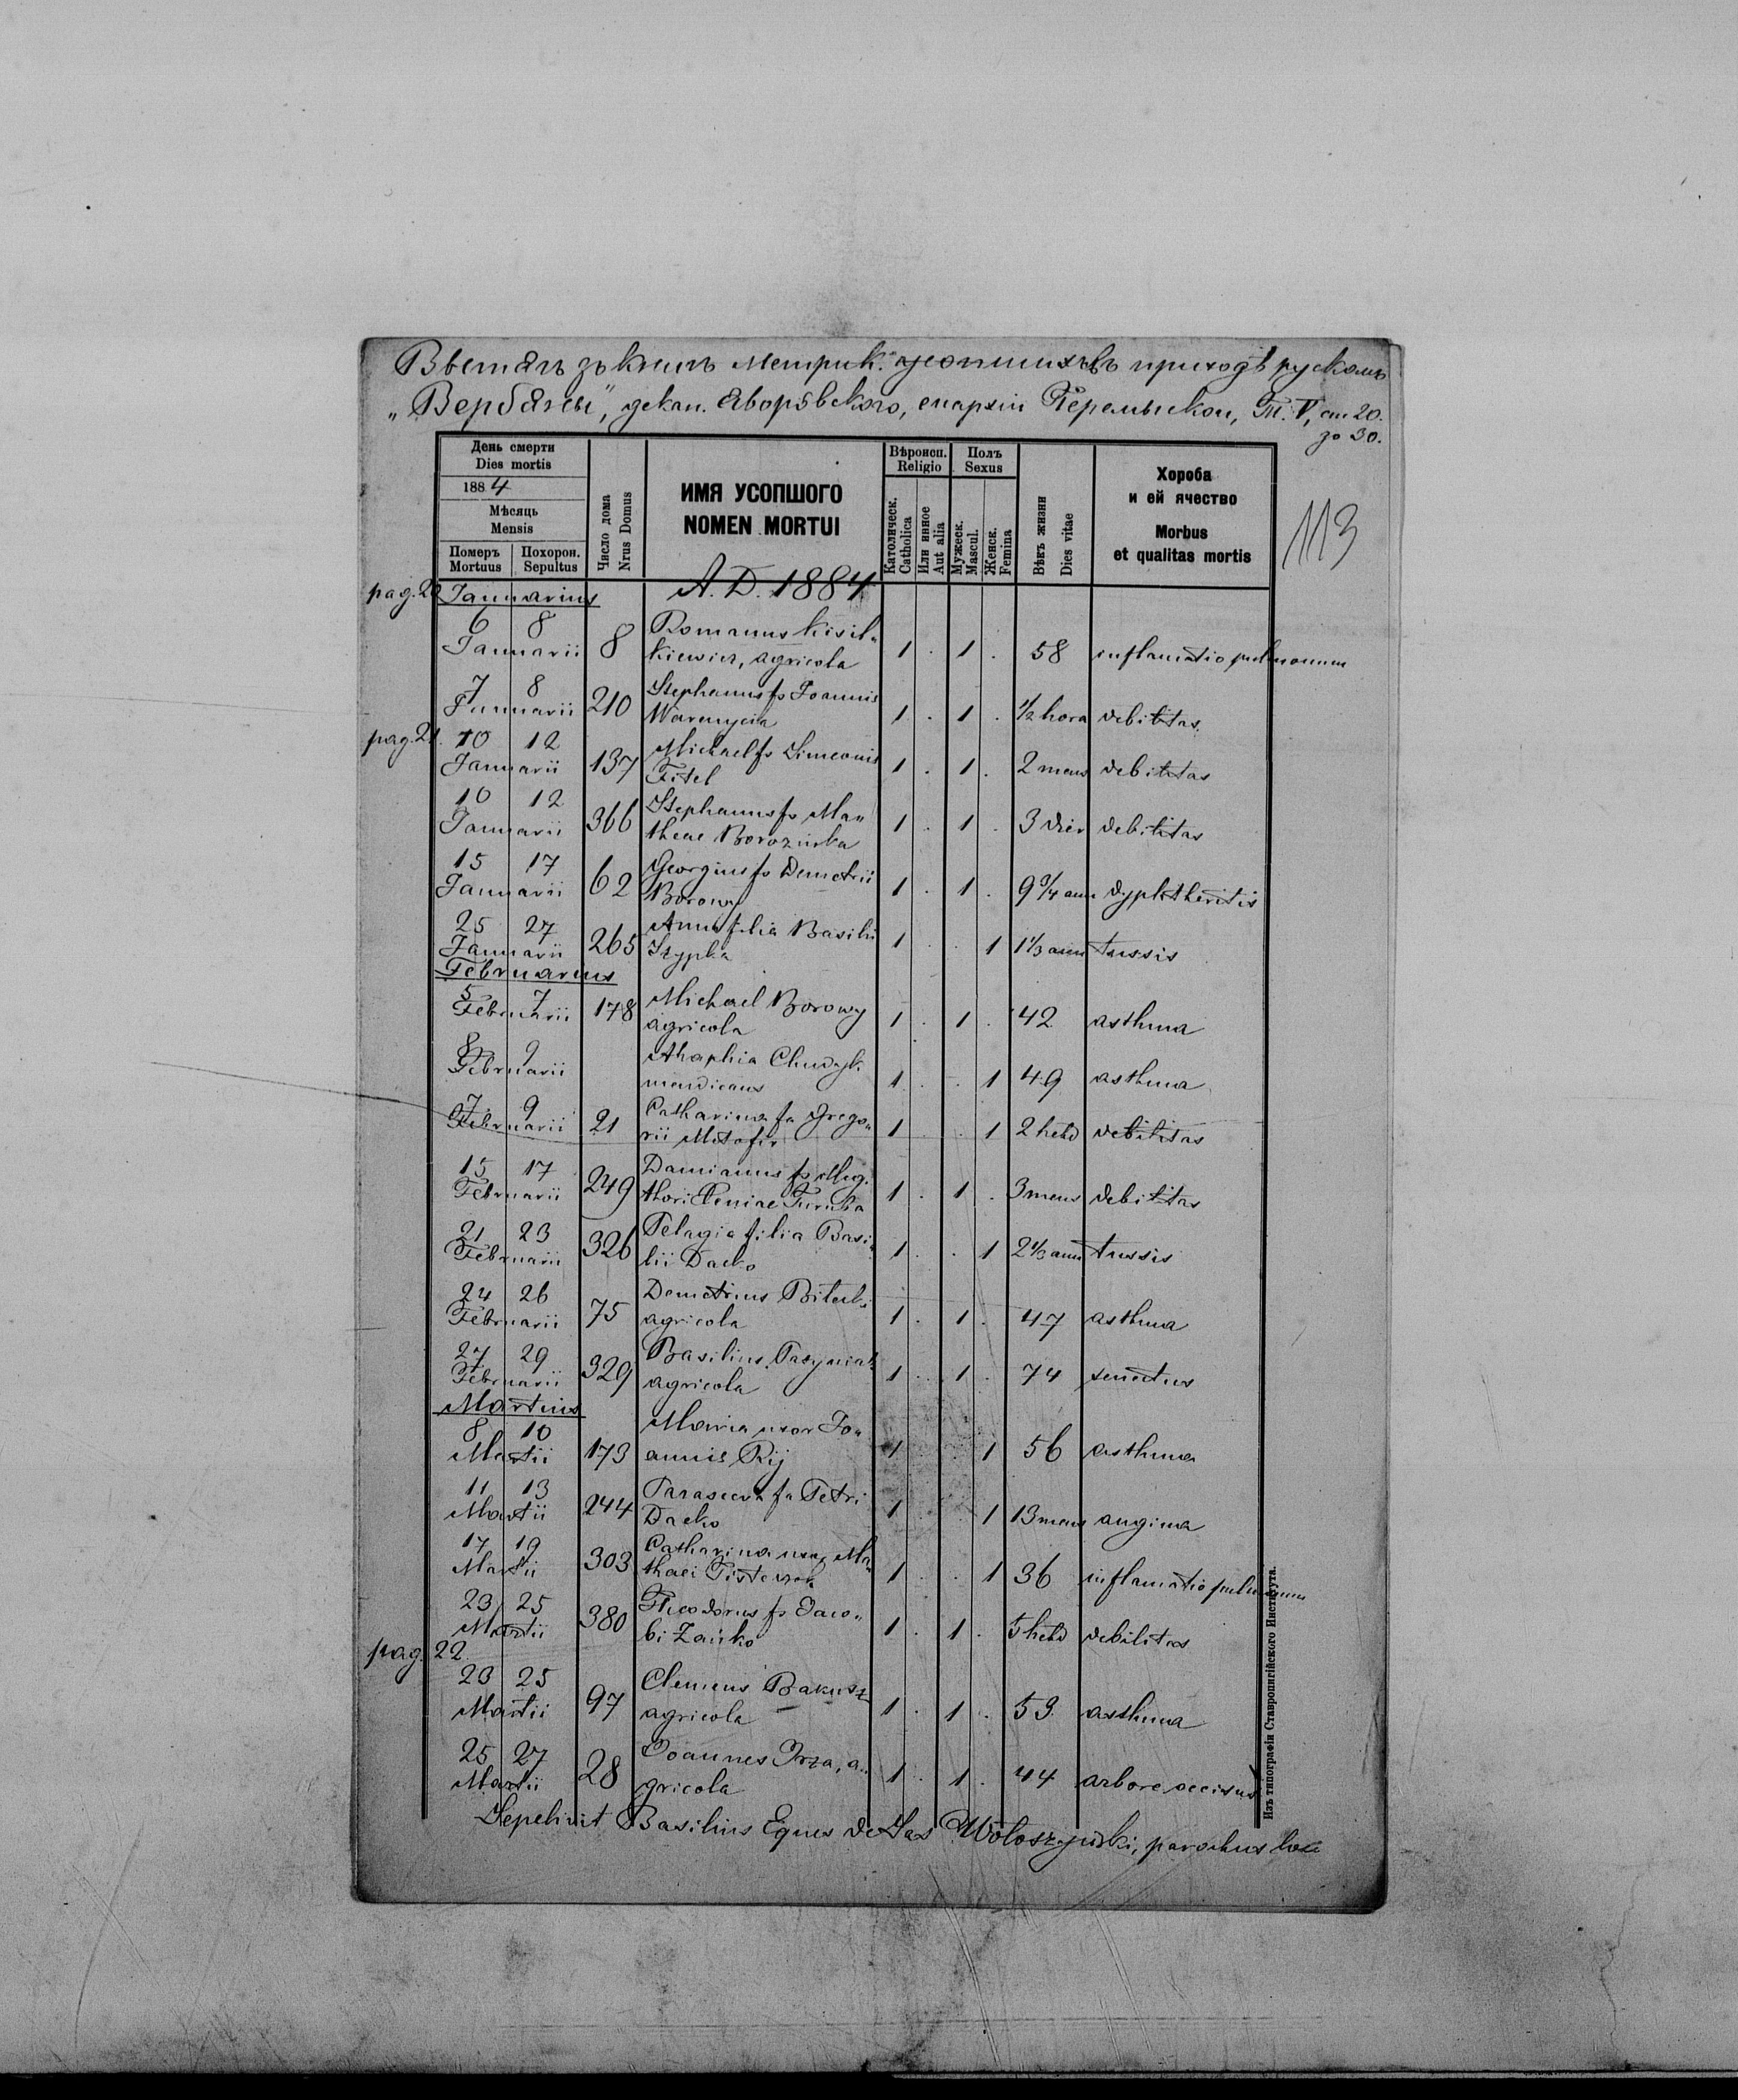 Вытягъ зъ книгъ метрик. усопшихъ въ приходѣ рускомъ
„Вербяны", декан. Яворôвского, епархіи Перемыскои, Т. V, ст 20.
до 30.
День смерти
Dies mortis
1884
Мѣсяць
Mensis
Померъ Mortuus
Похорон. Sepultus
Число дома
Nrus Domus
ИМЯ УСОПШОГО
NOMEN MORTUI
Вѣроисп.
Religio
Католическ.
Catholica
Или инное
Aut alia
Полъ
Sexus
Мужеск.
Mascul.
Женск.
Femina
Вѣкъ жизни
Dies vitae
Хороба
и ей ячество
Morbus
et qualitas mortis
113
pag. 20 Januarius A. D. 1884
6 8 Romanus Kisil„
Januarii 8 kiewicz, agricola 1 . 1 . 58 inflamatio pulmonum
7 8 Stephanus fs Joannis
Januarii 210 Waremycia 1 . 1 . 1/2 hora debilitas
pag. 21. 10 12 Michael fs Simeonis
Januarii 137 Fitel 1 . 1 . 2 mens debilitas
10 12 Stephanus fs Ma„
Januarii 366 theae Borozinka 1 . 1 . 3 dier debilitas
15 17 Georgius fs Demetrii
Januarii 62 Borowy 1 . 1 . 9 3/4 ann dyphtheritis
25 27 Anna filia Basilii
Januarii 265 1 . . 1 1 1/3 ann tussis
Februarius
5 7 Michael Borowy
Februarii 178 agricola 1 . 1 . 42 asthma
8 9 Ahaphia
Februarii mendicans 1 . . 1 49 asthma
7 9 Catharina fa Grego„
Februarii 21 rii 1 . . 1 2 hebd debilitas
15 17 Damianus fs
Februarii 249 1 . 1 . 3 mens debilitas
21 23 Pelagia filia Basi„
Februarii 326 lii Dacko 1 . . 1 2 1/3 ann tussis
24 26 Demetrius
Februarii 75 agricola 1 . 1 . 47 asthma
27 29 Basilius
Februarii 329 agricola 1 . 1 . 74 senectus
Martius
8 10 Maria uxor Jo„
Martii 173 annis Rij 1 . . 1 56 asthma
11 13 Parasceva fa Petri
Martii 244 Dacko 1 . . 1 13 mens angina
17 19 Catharina uxor Ma„
Martii 303 thaei 1 . . 1 36 inflamatio pulmonum
23 25 Theodorus fs Jaco„
Martii 380 bi Zańko 1 . 1 . 5 hebd debilitas
pag. 22
23 25 Clemens Bakusz
Martii 97 agricola 1 . 1 . 59 asthma
25 27 Joannes Irza, a„
Martii 28 gricola 1 . 1 . 44 arbore occisus
Sepelivit Basilius Eques de Sas Wołoszyński, parochus loci
Изъ типографіи Ставропигійского Института.